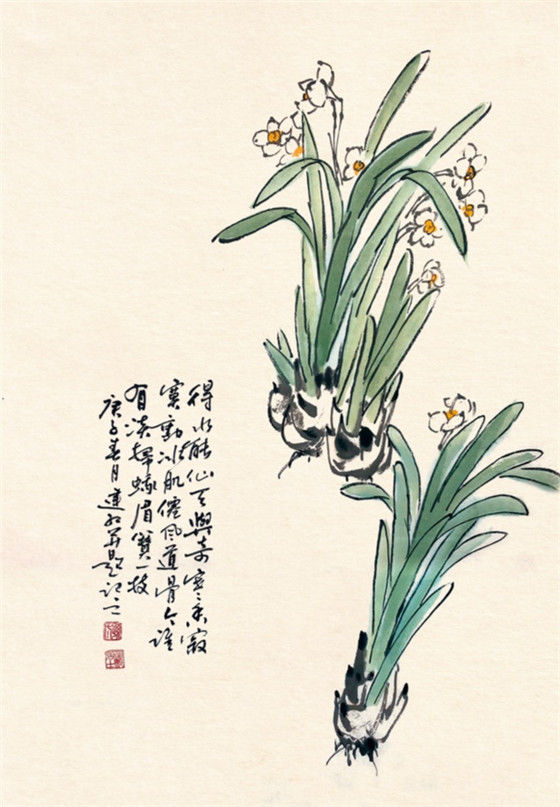 得水能仙天與奇寒香寂
寞動冰肌僊風道骨今誰
有淡掃蛾眉簪一枝
庚子春月建并題記之